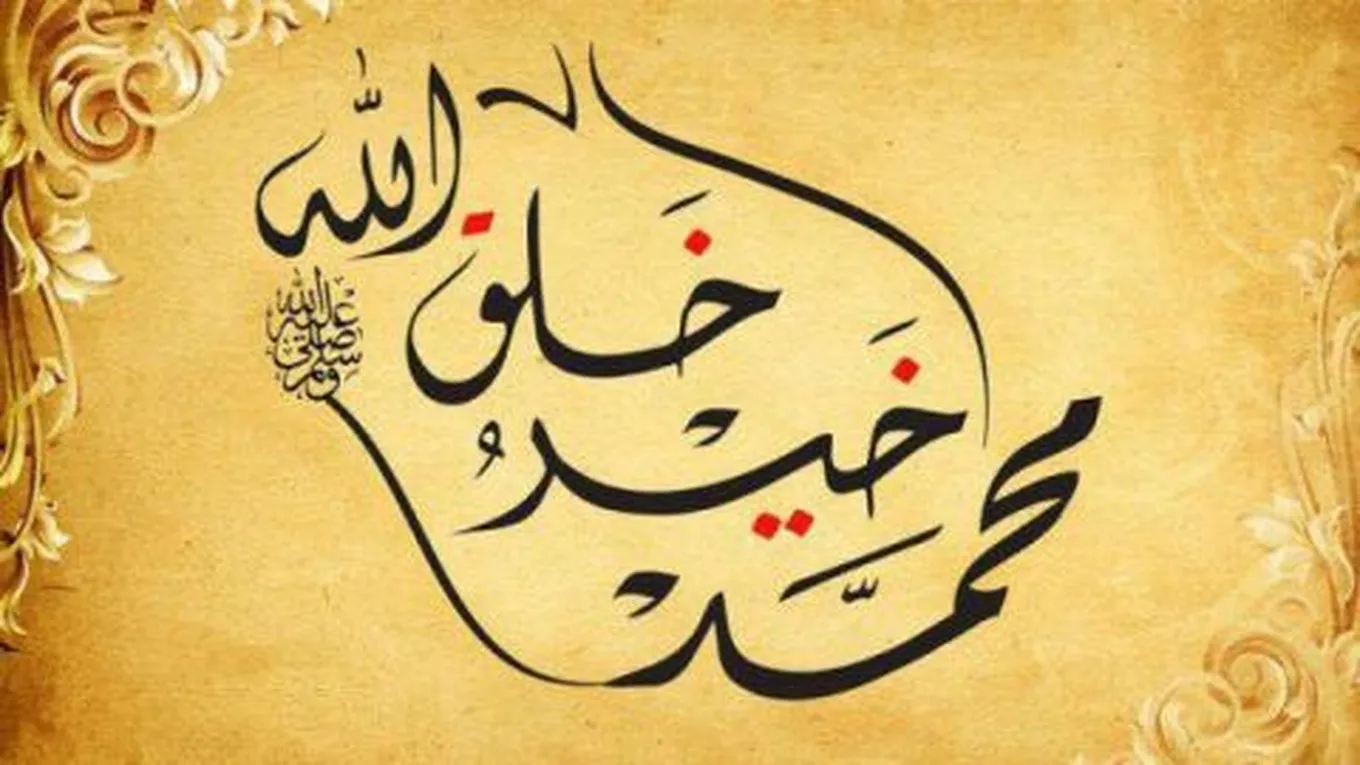 محمَّد
خَيْرُ
خَلق
الله
صلى الله عليه وسلم